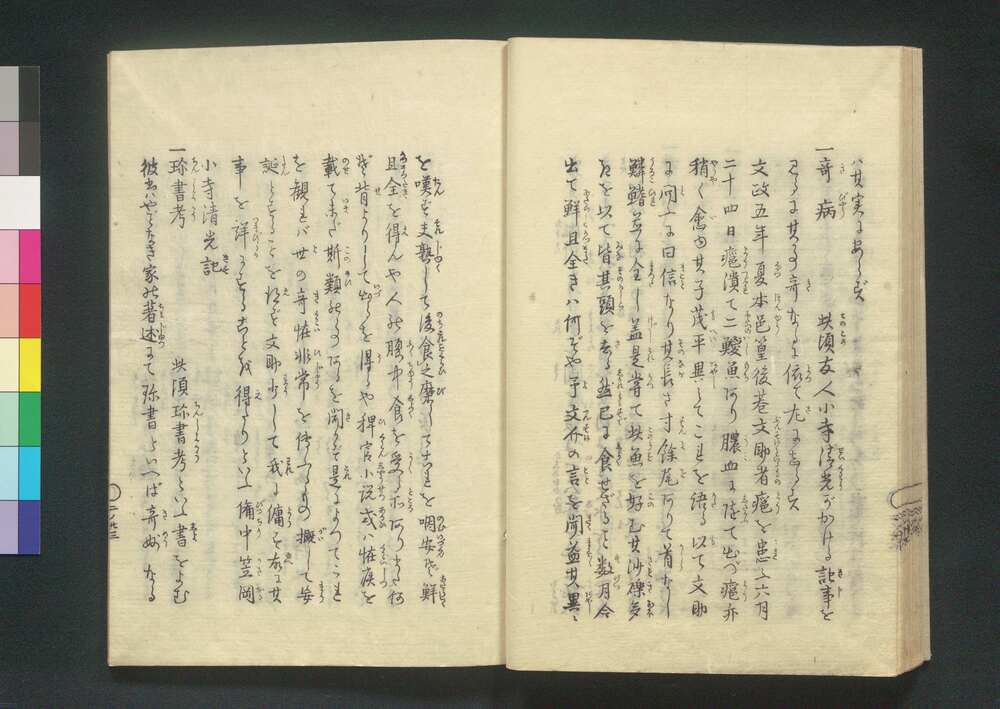 ハ其実にあらず
一奇病 此頃友人小寺清光がかける記事を
見るに其事奇なるに依て左にしるす
文政五年夏本邑篁後巷文助者瘧を患ふ六月
二十四日瘧潰て二鰻魚あり膿血に随て出づ瘧亦
稍く愈ゆ其子茂平異としてこれを語る以て文助
に問ふに曰信なり其長さ寸餘尾ありて首なし
鱗鰭並に全し蓋是嘗て此魚を好む其沙礫多
きを以て皆其頭を去る然已に食せざること数月今
出て鮮且全きハ何ぞや予文介の言を聞益其異
を嘆ず夫熟して後食之磨してこれを咽安ぞ鮮
且全を得んや人の腰中食を受る所ありまた何
ぞ背よりして出ることを得るや稗官小説或ハ怪疾を
載て未だ斯類のものあるを聞かず是によつてこれ
を観れバ世の奇怪非常を伝ふるもの概して妄
誕とすることを得ず文助少して我に傭を故に其
事を詳にすることを得たりといふ備中笠岡
小寺清光記
一珎書考 此頃珎書考といふ書をよむ
彼はやごとなき家の著述にて珎書といへば奇妙なる